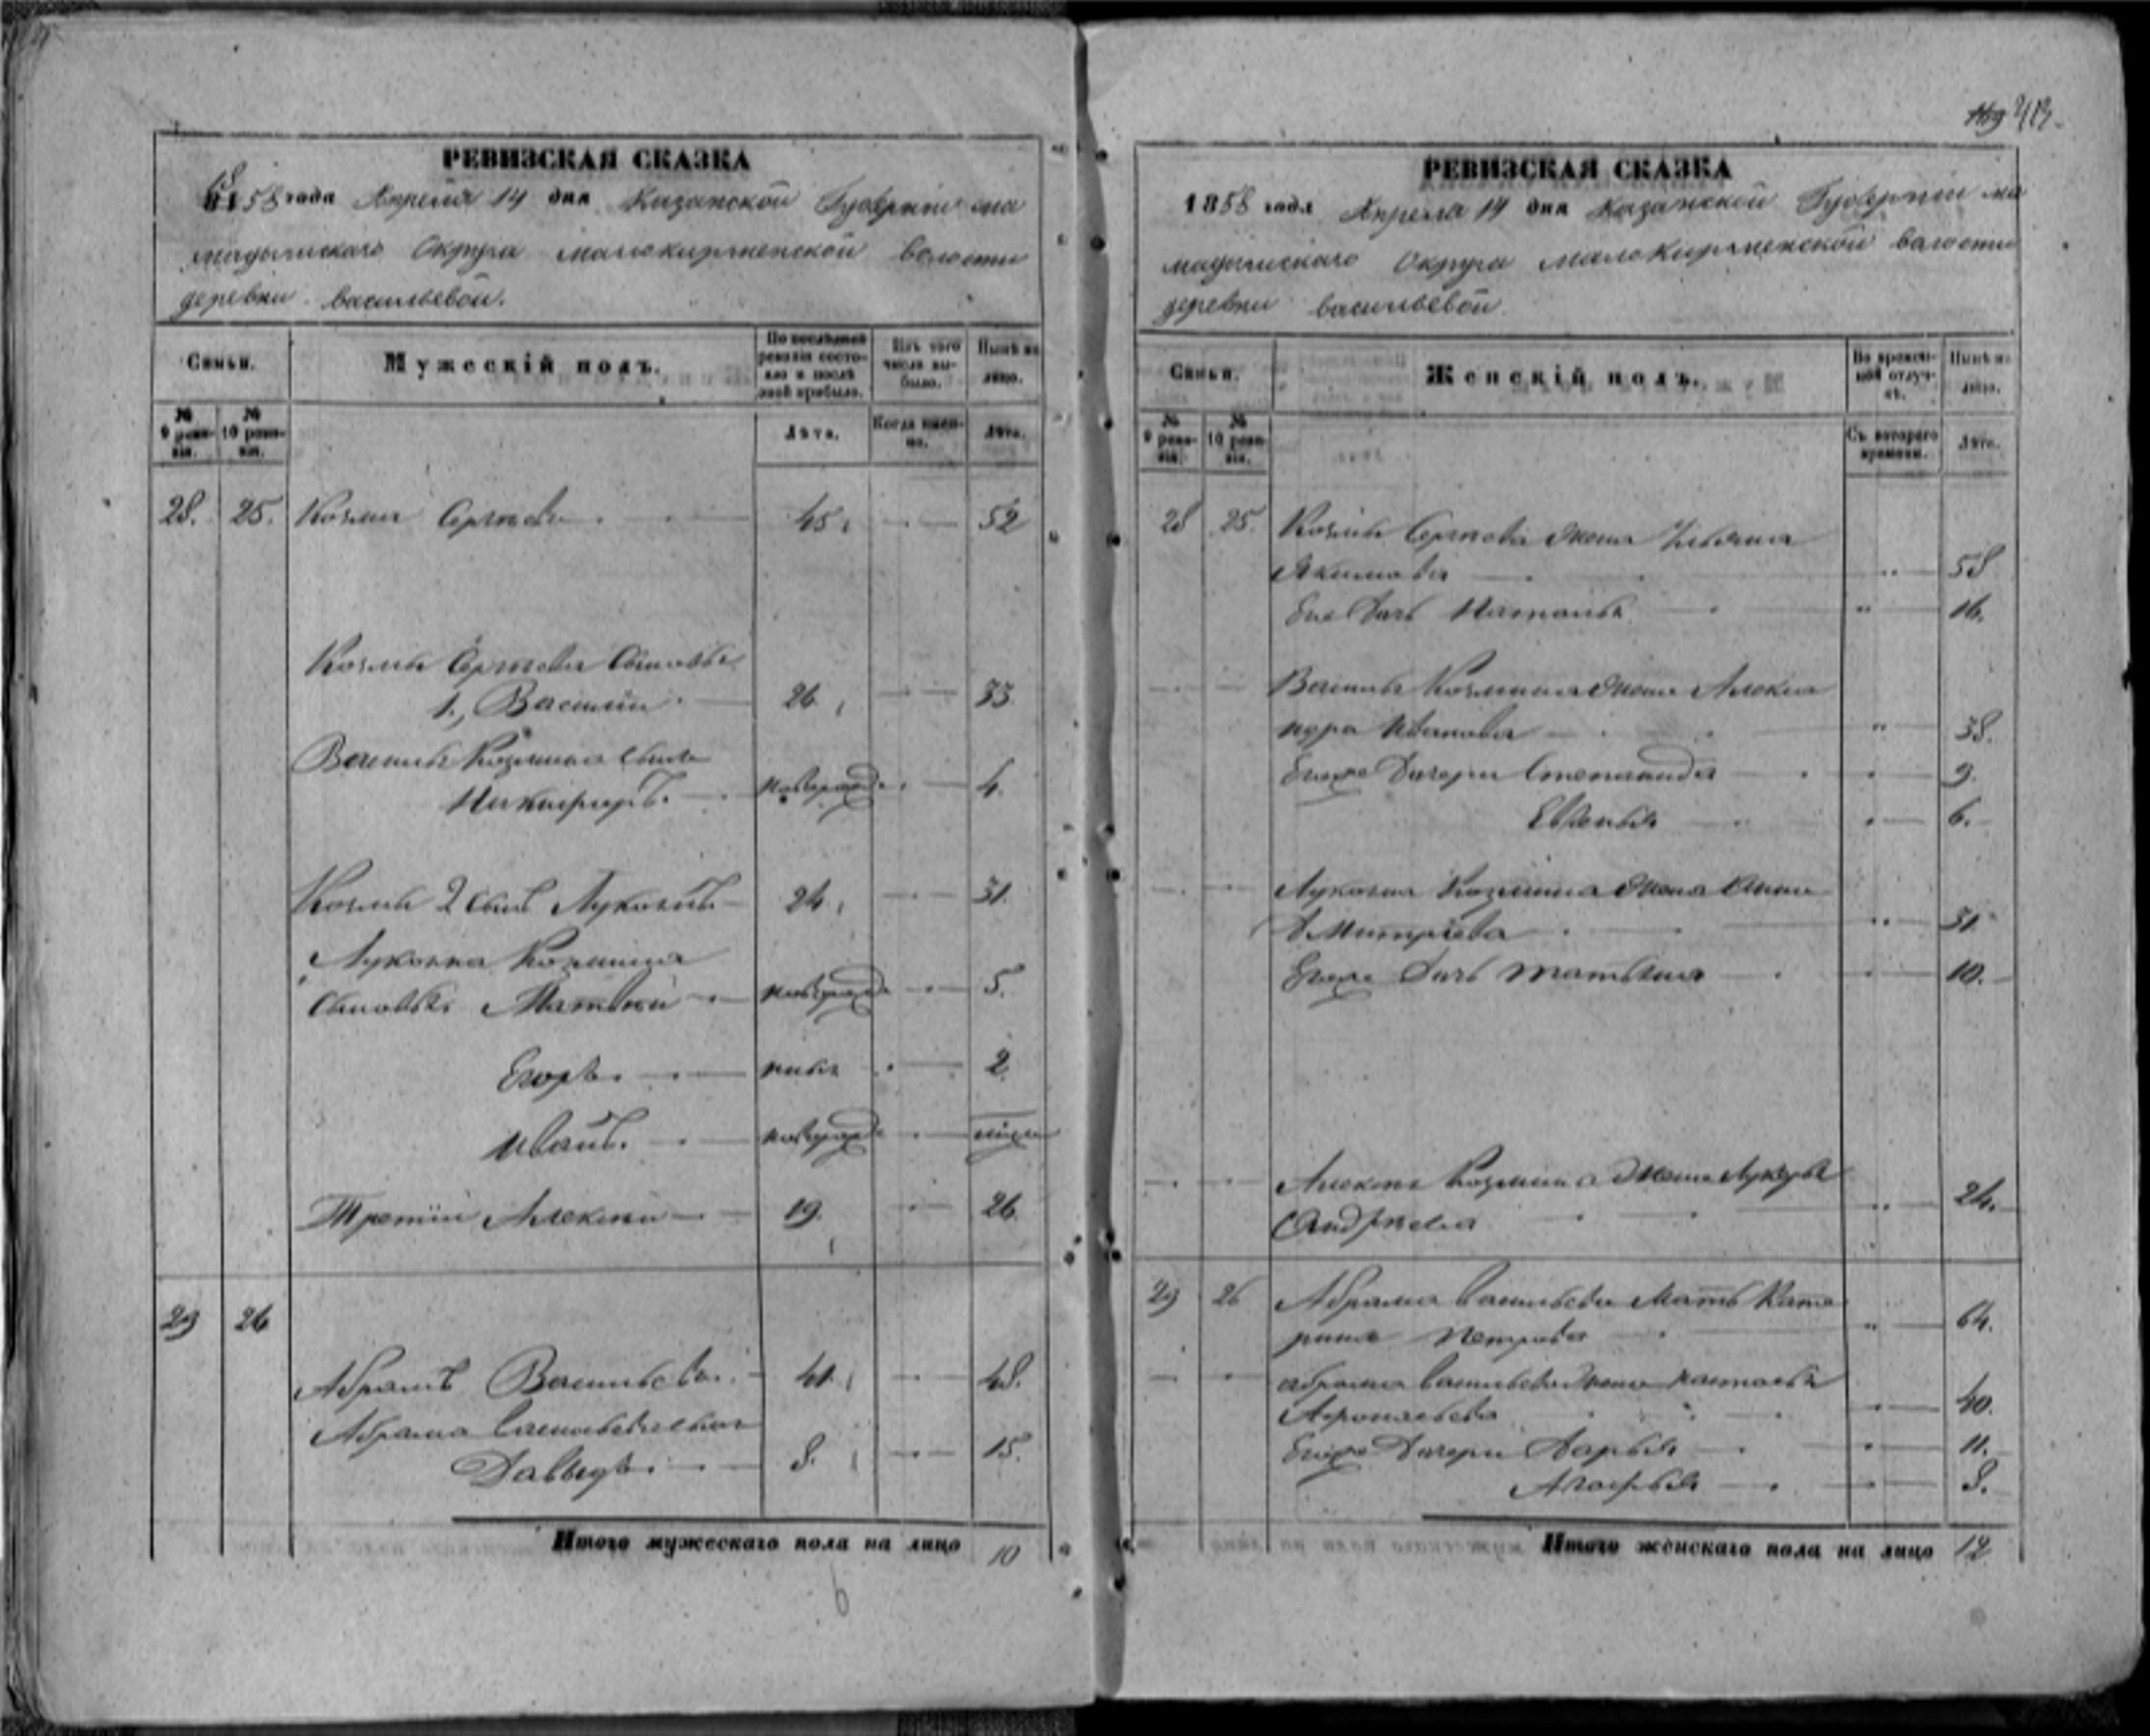 РЕВИЗСКАЯ СКАЗКА
1858 года Апреля 14 дня Казанской Губерніи ма
мадышскаго Округа малокирменской волости
деревни васильевой.
Семьи.
Мужескій полъ.
По послѣдней ревизіи состояло и послѣ оной прибыло.
Изъ того числа выбыло.
Нынѣ на лицо.
№ 9 ревизіи.
№ 10 ревизіи.
Лѣта.
Когда именно.
Лѣта.
28. 25. Козма Сергѣевъ 45. 52
Козмы Сергѣева Сыновья
1., Василій 26. 33.
Василья Козмина сынъ
Никифоръ. новорожд. 4.
Козмы 2 сынъ Лукоянъ 24. 31.
Лукояна Козмина
Сыновья Матвей новорожд 5.
Егоръ. 2.
Иванъ. новорожд
Третій Алексей 19. 26.
29 26
Абрамъ Васильевъ. 41. 48.
Абрама Васильева сынъ
Давыдъ. 8. 15.
Итого мужескаго пола на лицо 10
6
413.
РЕВИЗСКАЯ СКАЗКА
1858 года Апреля 14 дня Казанской Губерніи ма
мадышскаго Округа малокирменской валости
деревни васильевой.
Семьи.
Женскій полъ.
Во временной отлучкѣ.
Нынѣ на лицо.
№ 9 ревизіи.
№ 10 ревизіи.
Съ котораго времени.
Лѣта.
28 25. Козмы Сергѣева жена Ульяна
Якимова 58
Ево дочь Наталья 16.
Василья Козмина жена Алекса
ндра Иванова 38.
Ево Дочери Степанида 9.
Евгенья 6.
Лукояна Козмина жена Анна
Дмитріева 31
Ево дочь Татьяна 10.
Алексея Козмина жена Лукерья
Андреева 24.
29 26 Абрама Васильева мать Кате
рина Петрова 64.
абрама Васильева жена настасья
Афонасьева 40.
Ево Дочери Дарья 11.
Агафья 8.
Итого женскаго пола на лицо 12